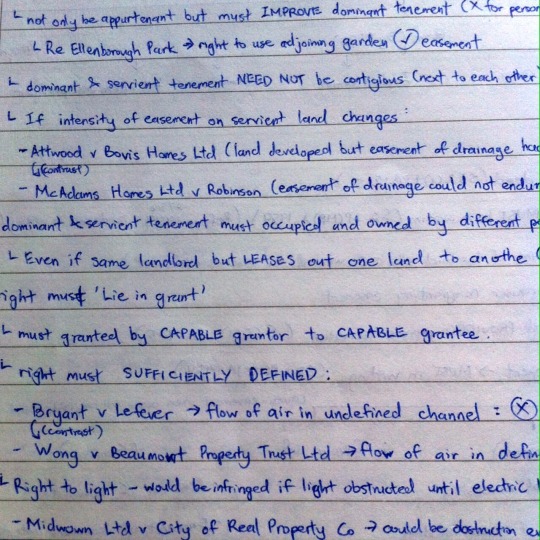 └ not only be appurtenant but must IMPROVE dominant tenement (X for person
└ Re Ellenborough Park → right to use adjoining garden ✓ easement
└ dominant & servient tenement NEED NOT be contigious (next to each other
└ If intensity of easement on servient land changes :
- Attwood v Bovis Homes Ltd (land developed but easement of drainage ha
↳(contrast)
- McAdams Homes Ltd v Robinson (easement of drainage could not endur
dominant & servient tenement must occupied and owned by different p
└ Even if same landlord but LEASES out one land to anothe (
right must 'Lie in grant'
└ must granted by CAPABLE grantor to CAPABLE grantee.
└ right must SUFFICIENTLY DEFINED :
- Bryant v Lefever → flow of air in undefined channel : X
↳(contrast)
- Wong v Beaumont Property Trust Ltd → flow of air in defin
└ Right to light - would be infringed if light obstructed until electric l
- Midwown Ltd v City of Real Property Co → could be obstruction ev